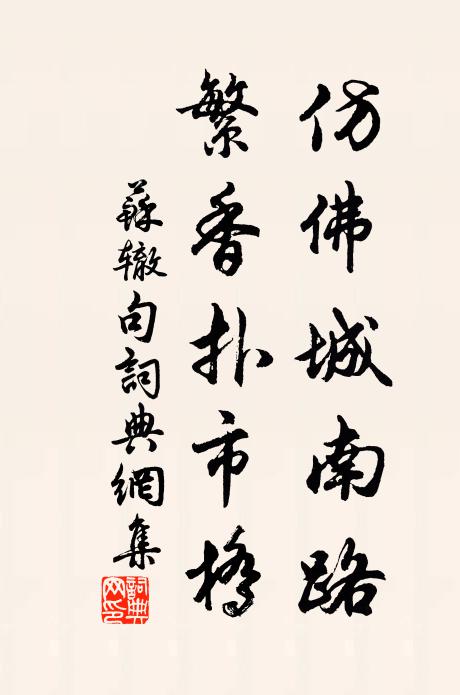 仿佛城南路
繁香扑市橋
蘇辙句詞典網集
詞典网印